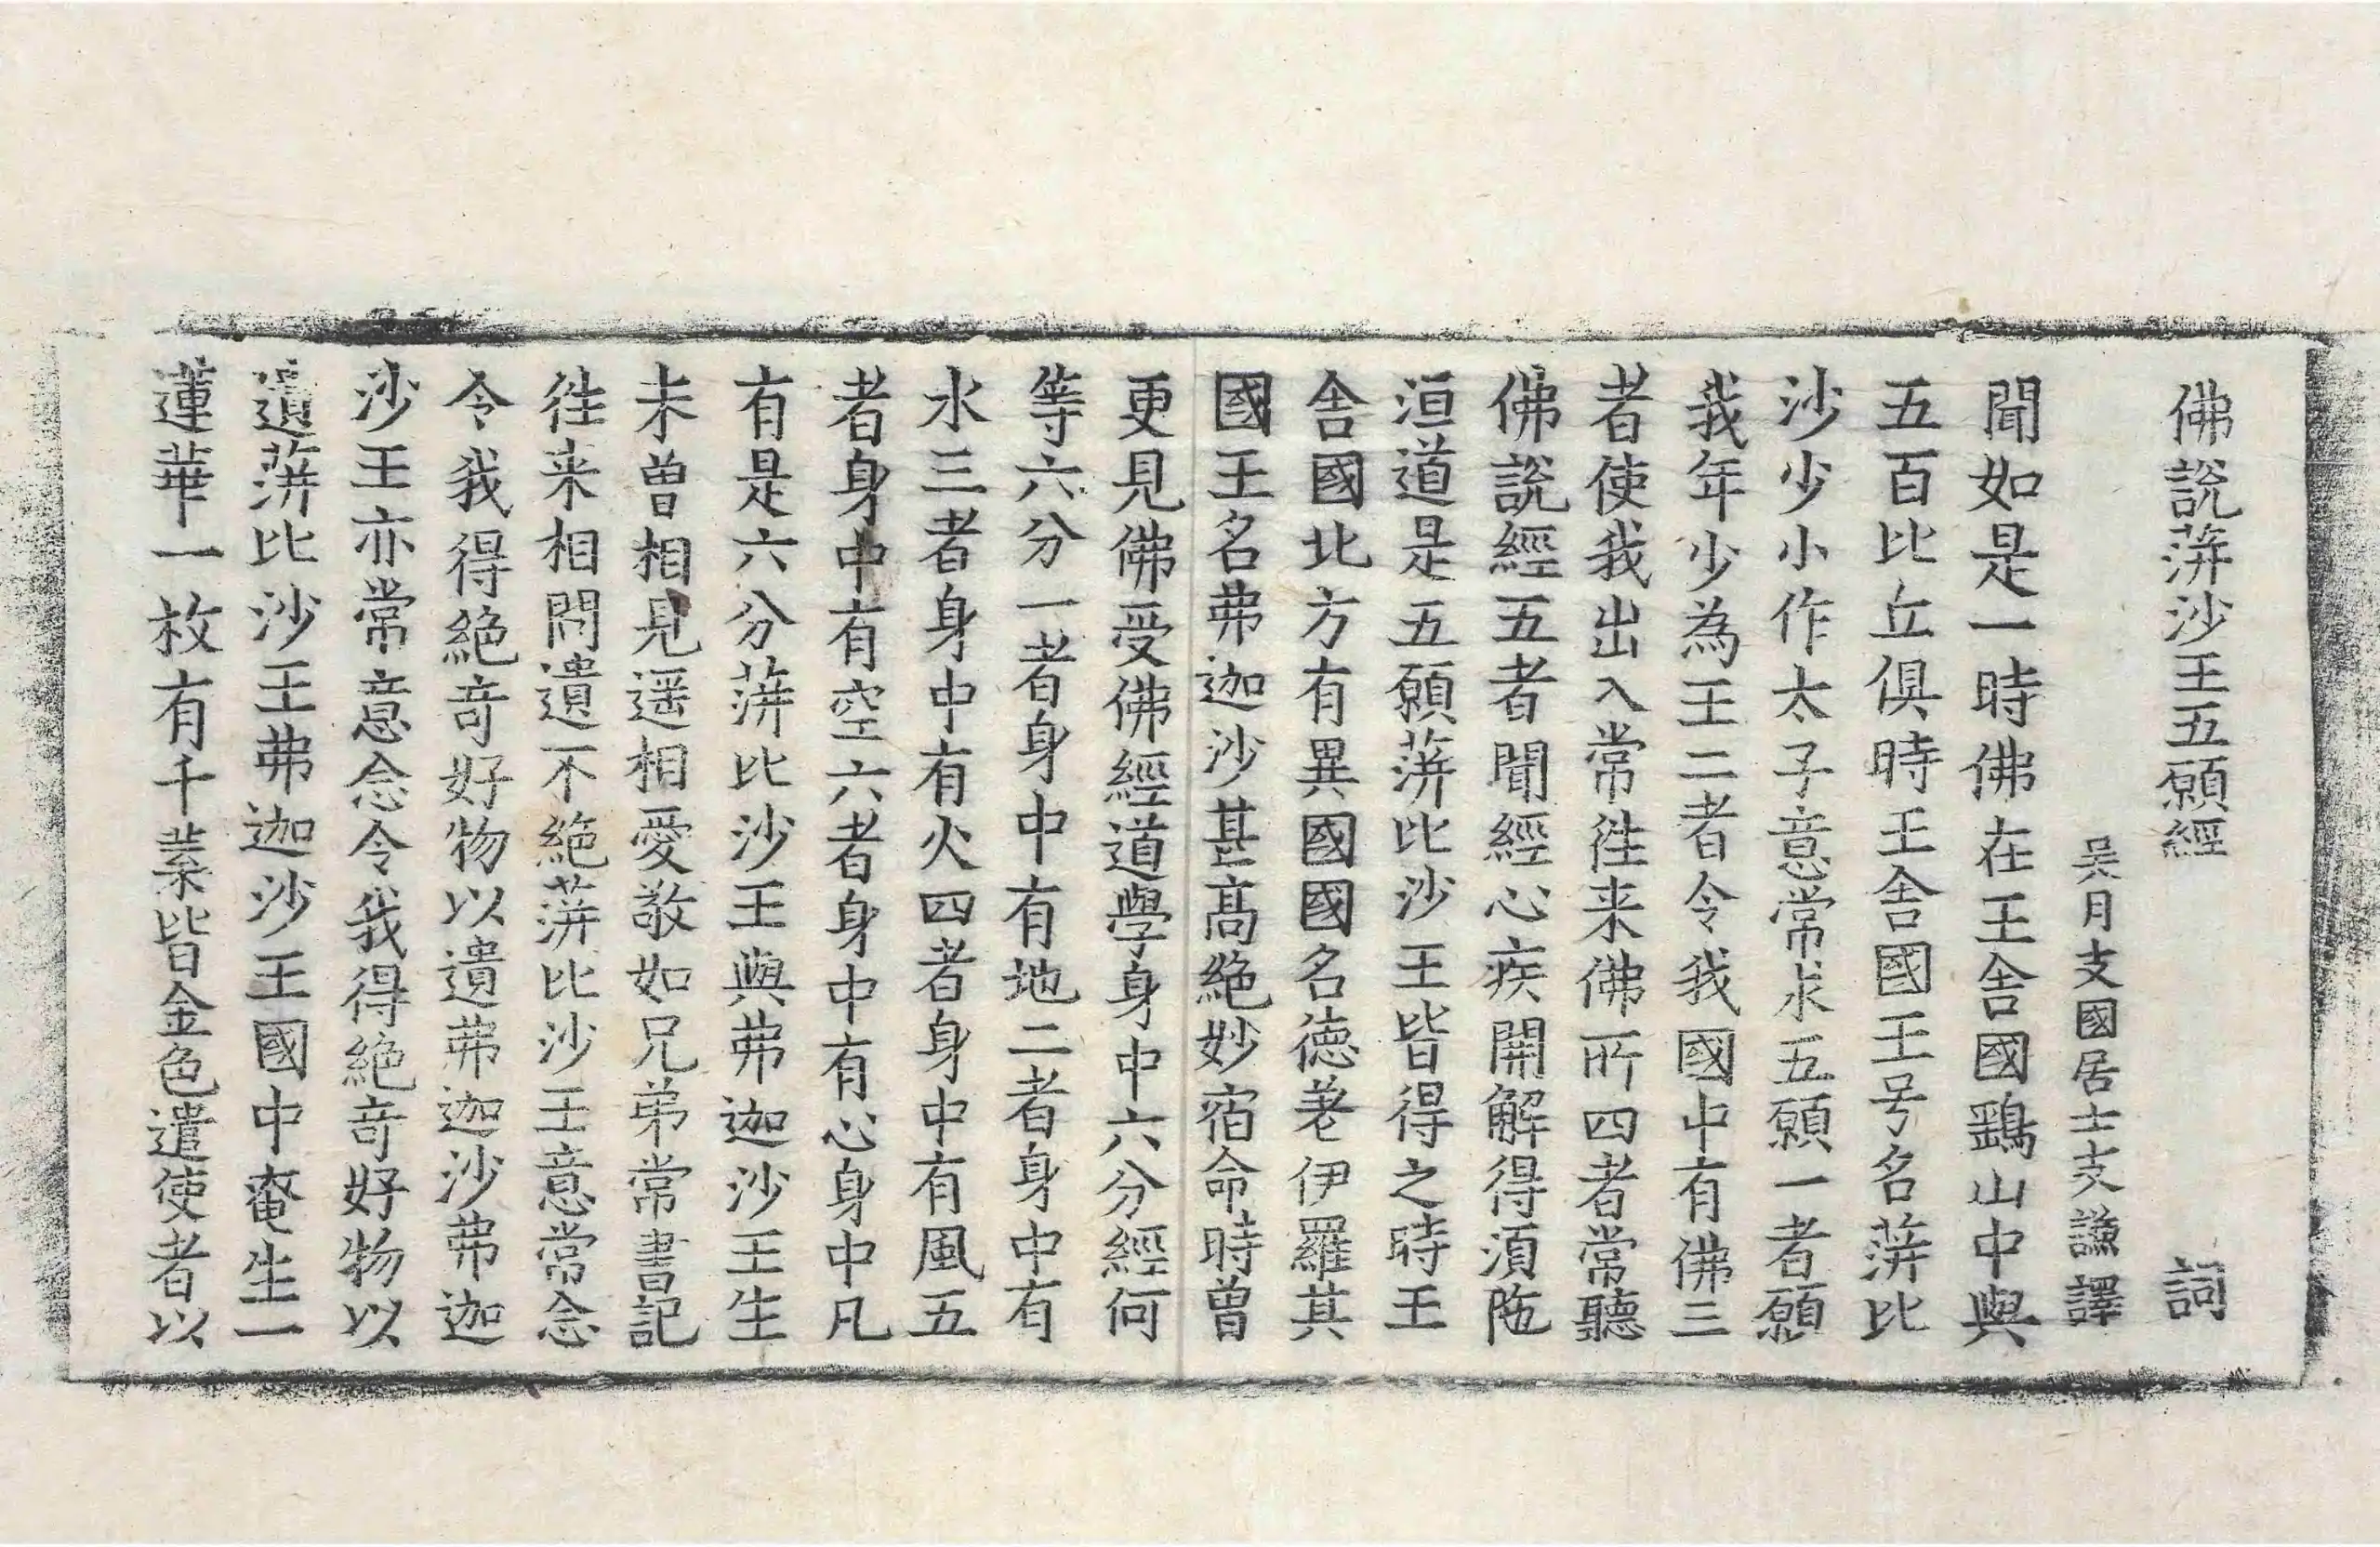 佛說蓱沙王五願經 詞
吳月支國居士支謙譯
聞如是一時佛在王舍國鷄山中與
五百比丘俱時王舍國王号名蓱比
沙沙少小作太子意常求五願一者願
我年少為王二者令我國中有佛三
者使我出入常徃来佛所四者常聽
佛說經五者聞經心疾開解得湏陁
洹道是五願蓱比沙王皆得之時王
舍國北方有異國國名德差伊羅其
國王名弗迦沙甚髙絶妙宿命時曾
更見佛受佛經道學身中六分經何
等六分一者身中有地二者身中有
水三者身中有火四者身中有風五
者身中有空六者身中有心身中凡
有是六分蓱比沙王與弗迦沙王生
未曾相見遥相愛敬如兄弟常書記
徃来相問遺不絶蓱比沙王意常念
令我得絶竒好物以遺弗迦沙弗迦
沙王亦常意念令我得絶竒好物以
遺蓱比沙王弗迦沙王國中奄生一
蓮華一枚有千葉皆金色遣使者以